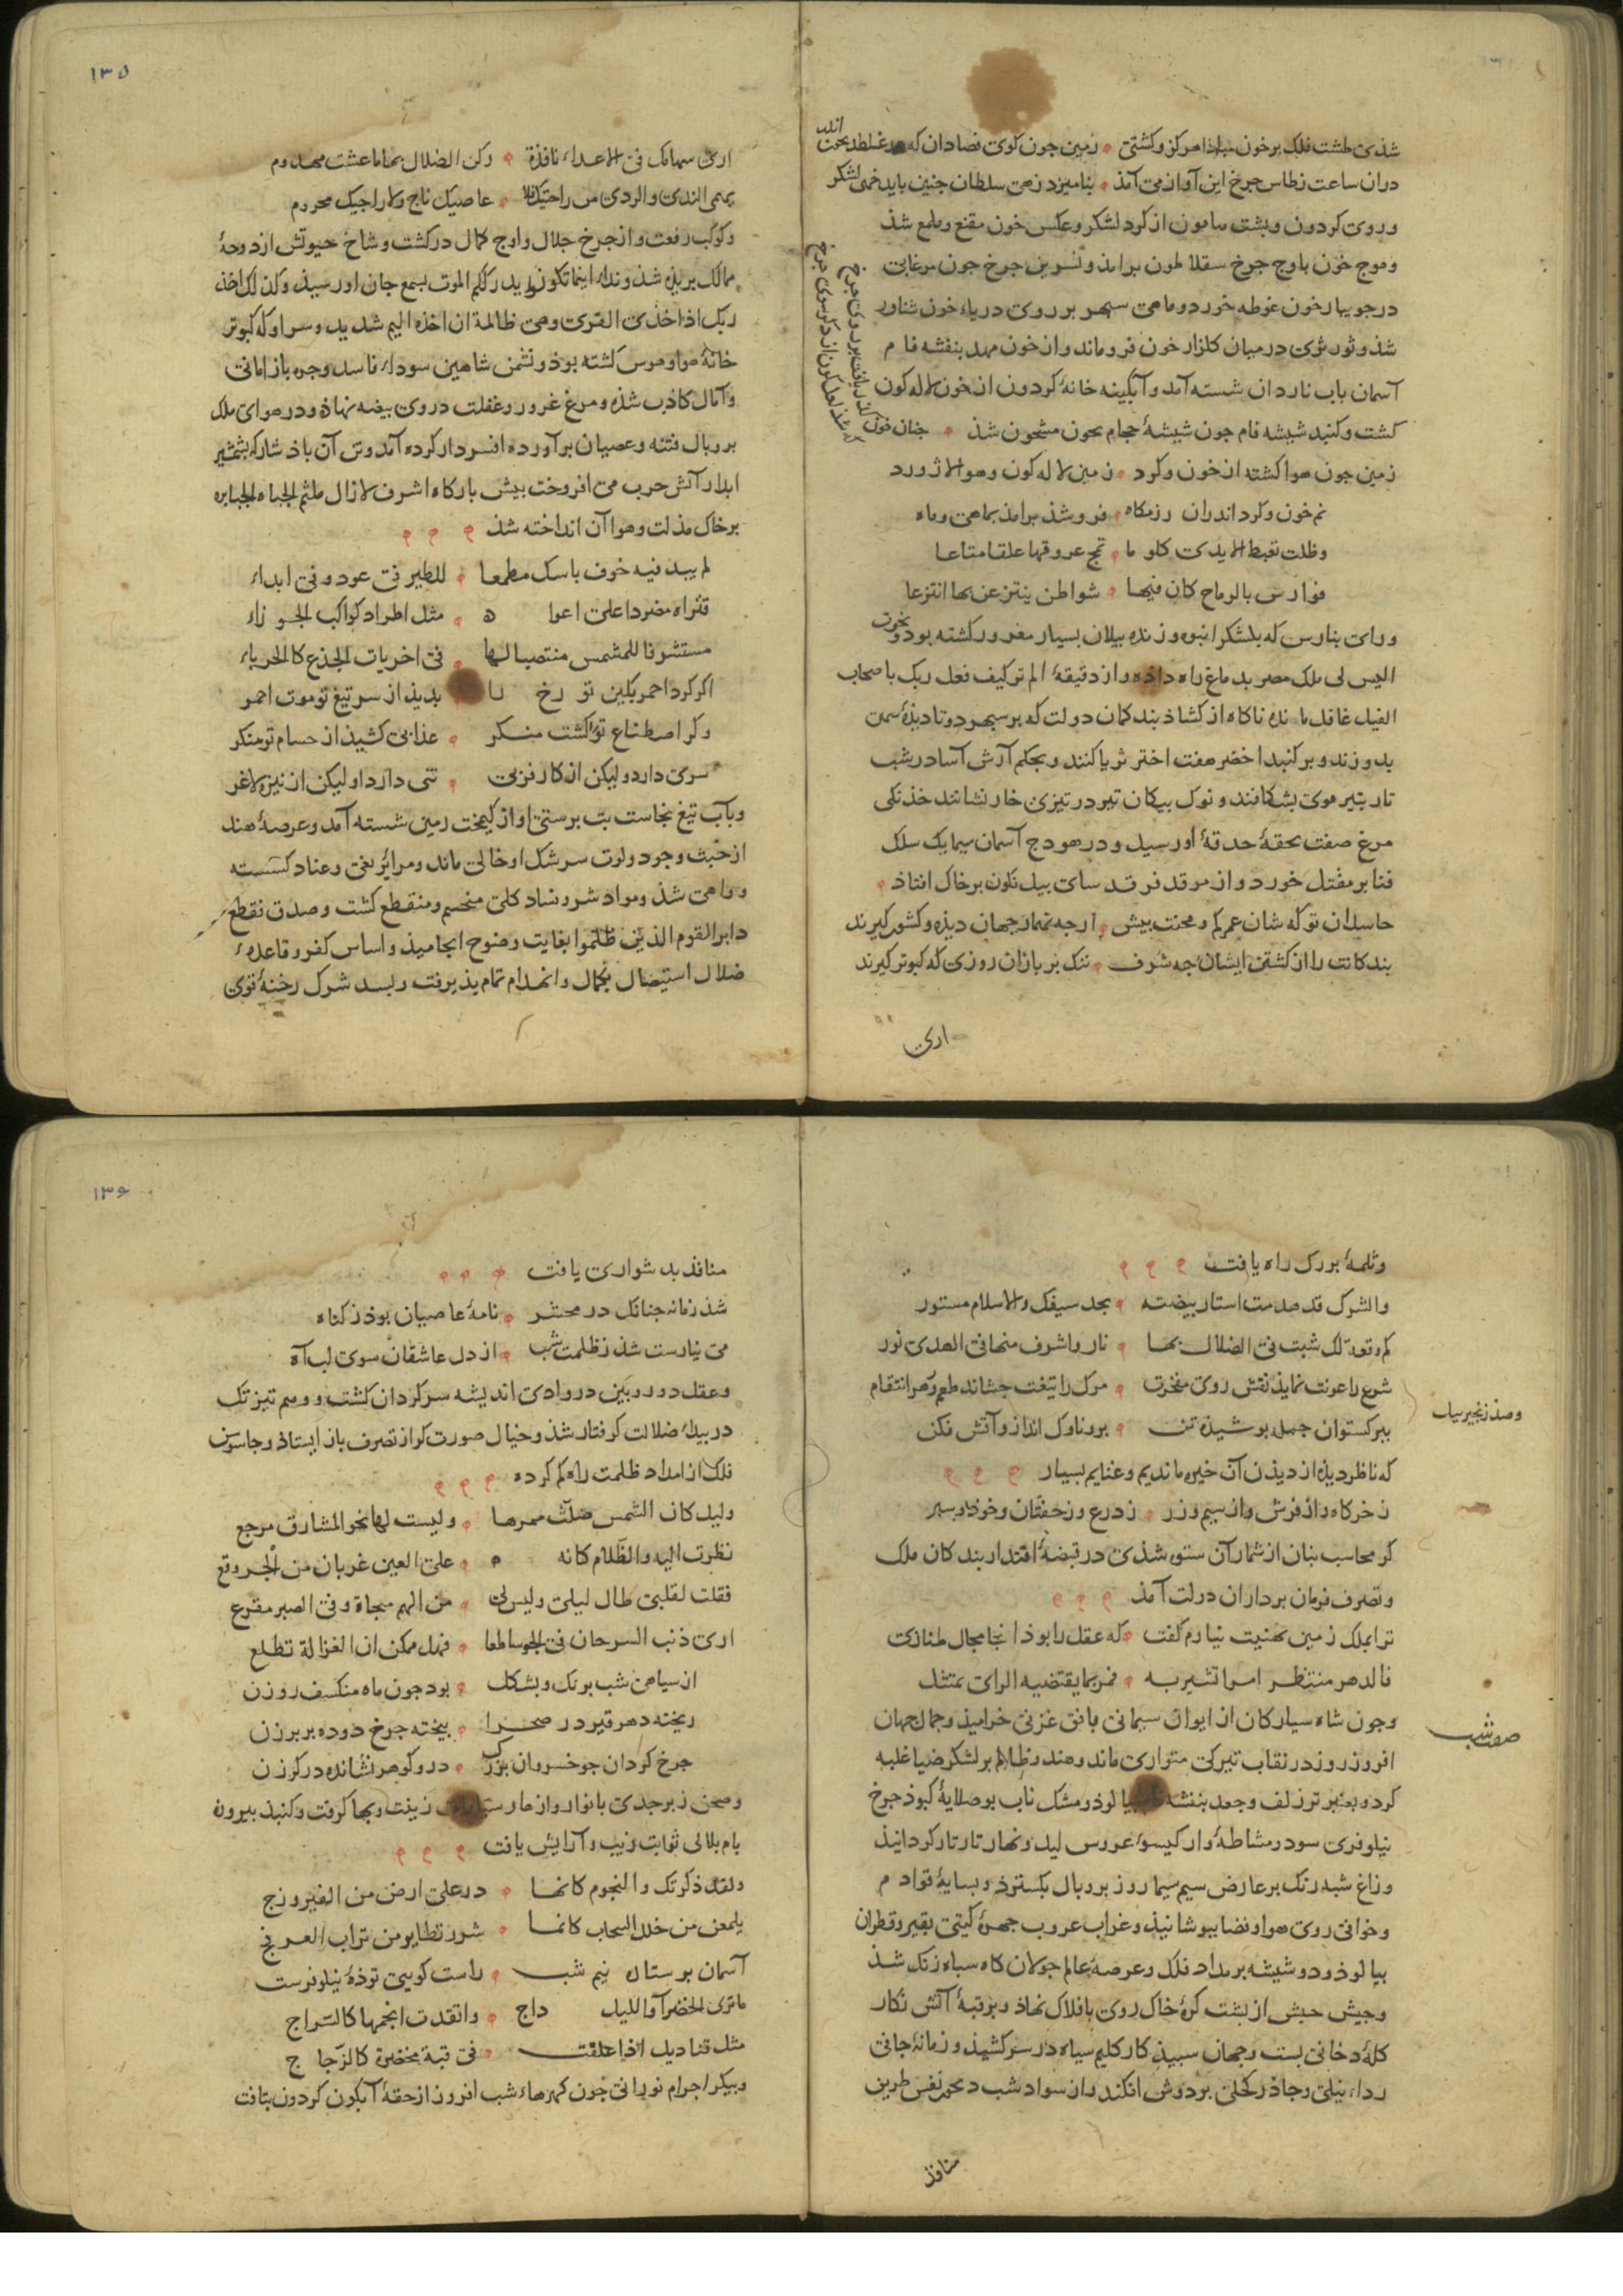 شذی طشت فلک برخون مباذا مرکز وکشتی زمین جون کوی فصادان که در غلطد بخون اندر
دران ساعت ز طاس جرخ این آواز می آمذ بنامیزد زهی سلطان جنین باید خمی لشکر
وروی کردون وبشت هامون از کرد لشکر وعکس خون مقنع وملمع شذ
وموج خون باوج جرخ سقلاطون برامذ ونسرین جرخ جون مرغابی
در جویبار خون غوطه خورد وماهی سپهر بر روی دریاء خون شناور
شذ وثور ثری در میان کلزار خون فروماند واز خون مهد بنفشه فام
آسمان باب ناردان شسته آمد وآبکینه خانهٔ کردون از خون لاله کون
کشت وکنبد شیشه فام جون شیشهٔ حجام بخون مشحون شذ جنان خون
زمین جون هوا کشته از خون وکرد زمین لاله کون وهوا لاژورد
نم خون وکرد اندران رزمکاه فرو شذ برامذ بماهی وماه
وظلت تغبط الایدی کلوما تمج عروقها علقا متاعا
فوارس بالرماح کان فیها شواطن ینتزعن بها انتزعا
ورای بنارس که بلشکر انبوه وزنده بیلان بسیار مغرور کشته بود ونخوت
الیس لی ملک مصر بدماغ راه داذه واز دقیقهٔ الم تر کیف فعل ربک باصحاب
الفیل غافل مانده ناکاه از کشاذ بند کمان دولت که بر سپهر دو تا دیذهٔ سمن
بدوزند وبر کنبد اخضر هفت اختر ثریا کنند وبحکم آرش آسا در شب
تار بتیر موی بشکافند ونوک بیکان تیر در تیزی خار نشانند خذنکی
مرغ صفت بحقهٔ حدقهٔ او رسید ودر هودج آسمان سیما یک سلک
فنا بر مقتل خورد واز مرقد فرقد سای بیل نکون برخاک افتاذ
حاسدان تو که شان عمر کم ومحنت بیش ارجه نمار جهان دیذه وکشور کیرند
بندکانت را از کشتن ایشان جه شرف ننک بر بازان روزی که کبوتر کیرند
اری
۱۳۵
اری سهامک فی الاعداء نافذة رکن الضلال بها ما عشت مهدوم
یهمی الندی والردی من راحتیک فلا عاصیک ناج ولا راجیک محروم
وکوکب رفعت واز جرخ جلال واوج کمال درکشت وشاخ حیوتش از دوحهٔ
ممالک بریذه شذ ونداء اینما تکونوا یدرککم الموت بسمع جان او رسیذ وکذلک اخذ
ربک اذا اخذ القری وهی ظالمة ان اخذه الیم شدید وسر او که کبوتر
خانهٔ هوا وهوس کشته بوذ ونشمن شاهین سوداء فاسد وجره باز امانی
وآمال کاذب شذه ومرغ غرور وغفلت در وی بیضه نهاذه ودر هوای ملک
بر وبال فتنه وعصیان برآورده افسردار کرده آمد وتن آن باذ شار که بشمشیر
ابدار آتش حرب می افروخت بیش بارکاه اشرف لازال ملثم الجباه الجبابره
برخاک مذلت وهوا آن انداخته شذ
لم یبد فیه خوف باسک مطمعا للطیر فی عود وفی ابداء
فتراه مضردا علی اعوا ه مثل اطراد کواکب الجوزاء
مستشرفا للشمس منتصبا لها فی اخریات الجذع کالحرباء
اکر کرد احمر بکین تو رخ را بدیذ از سر تیغ تو موت احمر
وکر اصطناع تو را کشت منکر عذابی کشیذ از حسام تو منکر
سری دارد ولیکن از کارفربی تنی دارد او لیکن از نیزه لاغر
وبآب تیغ نجاست بت برستی او از کیمخت زمین شسته آمد وعرصهٔ هند
از خبث وجود ولوث سر شک او خالی ماند ومرائر بغی وعناد کسسته
وواهی شذ ومواد شر وفساد کلی منحسم ومنقطع کشت وصدق فقطع
دابر القوم الذین ظلموا بغایت وضوح انجامیذ واساس کفر وقاعدهٔ
ضلال استیصال بکمال وانهدام تمام پذیرفت وبسد شرک رخنهٔ قوی
وثلمهٔ بزرک راه یافت
والشرک قد هدمت استار بیضته بحد سیفک والاسلام مستور
کم وقعة لک شبت فی الضلال بها نار واشرف منها فی الهدی نور
شرع را عونت نمایذ نقش روی مفخرت مرک را تیغت جشاند طعم زهر انتقام
ببر کستوان جمله بوشیذه تن برو ناوک انداز وآتش فکن
وصذ زنجیر بیل
که ناظر دیذه از دیذن آن خیره ماندیم وغنایم بسیار
ز خرکاه واز فرش واز سیم وزر ز درع وز خفتان وخوذ وسبر
کر محاسب بنان از شمار آن ستوه شذی در قبضهٔ اقتدار بندکان ملک
وتصرف فرمان برداران دولت آمذ
ترا بملک زمین تهنیت نیارم کفت که عقل را بوذ انجا مجال طنازی
فالدهر منتظر امرا تشیر به فمر بما یقتضیه الرای یمتثل
وجون شاه سیارکان از ایوان سیمانی بافق غزنی خرامیذ وجمال جهان
صفت شب
افروز روز در نقاب تیرکی متواری ماند وهند وظلام بر لشکر ضیا غلبه
کرد وبعنبر تر زلف وجعد بنفشه بیالوذ ومشک ناب بوصلایهٔ کبوذ جرخ
نیلوفری سود ومشاطه وار کیسوء عروس لیل ونهار تار تار کردانیذ
وزاغ شبه رنک بر عارض سیم سیما روز بر وبال بکسترذ وبسایهٔ قوادم
وخوافی روی هوا وفضا ببوشانیذ وغراب غروب جهرهٔ کیتی بقیر وقطران
بیالوذ ودو شیشه بر مداد فلک وعرصهٔ عالم جولان کاه سیاه زنک شذ
وجیش حبش از بشت کرهٔ خاک روی بافلاک نهاذ وبر قبهٔ آتش نکار
کلهٔ دخانی بست وجهان سبیذ کار کلیم سیاه در سر کشیذ وزمانهٔ جافی
رداء نیلی وجاذر کحلی بر دوش افکند واز سواد شب دیجور نفس طریق
منافذ
۱۳۶
منافذ بدشواری یافت
شذ زمانه جنانک در محشر نامهٔ عاصیان بوذ ز کناه
می نیارست شذ ز ظلمت شب از دل عاشقان سوی لب آه
وعقل دوربین در وادی اندیشه سرکردان کشت ووهم تیزتک
در بیداء ضلالت کرفتار شذ وخیال صورت کر از تصرف باز ایستاذ وجاسوس
فلک از امداد ظلمت راه کم کرده
ولیل کان الشمس ضلت ممرها ولیست لها نحو المشارق مرجع
نظرت الیه والظلام کانه علی العین غربان من الجو وقع
فقلت لقلبی طال لیلی ولیس لی من الهم منجاة وفی الصبر مفزع
اری ذنب السرحان فی الجو ساطعا فهل ممکن ان الغزالة تطلع
از سیاهی شب برنک وبشکل بود جون ماه منکسف روزن
ریخته دهر قیر در صحرا بیخته جرخ دوده بر برزن
جرخ کردان جو خسروان بزرک در وکوهر نشانده در کرزن
وصحن زبرجدی بانوار وازهار زینت وبها کرفت وکنبذ بیرون
بام بلالی ثوابت زیب وآرایش یافت
ولقد ذکرتک والنجوم کانها در علی ارض من الفیروزج
یلمعن من خلل السحاب کانما شرر تطایر من تراب العرفج
آسمان بر ستاره نیم شب راست کویی توذهٔ نیلوفرست
ما تری الخضرآء واللیل داج واتقدت انجمها کالسراج
مثل قنادیل اذا علقت فی قبة مخضرة کالزجاج
وبیکر اجرام نورانی جون کهرهاء شب افروز از حقهٔ آبکون کردون بتافت